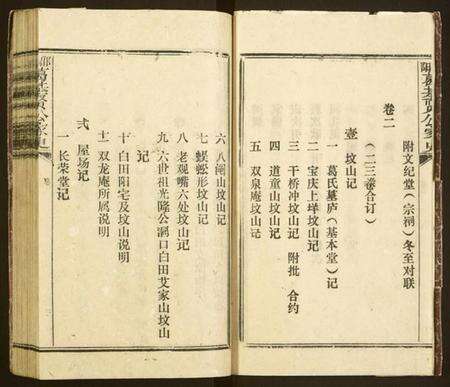 附文纪堂（宗祠）冬至对联
卷二
（二三卷合订）
壹 坟山记
一 葛氏墓庐（基本堂）记
二 宝庆上垟坟山记
三 干桥冲坟山记 附批 合约
四 道童山坟山记
五 双泉庵坟山记
六 八闸山坟山记
七 蜈蚣形坟山记
八 老观嘴六处坟山记
九 六世祖光隆公洞口白田艾家山坟山
记
十 白田阳宅及坟山说明
十一 双龙庵所属说明
弍 屋场记
一 长荣堂记